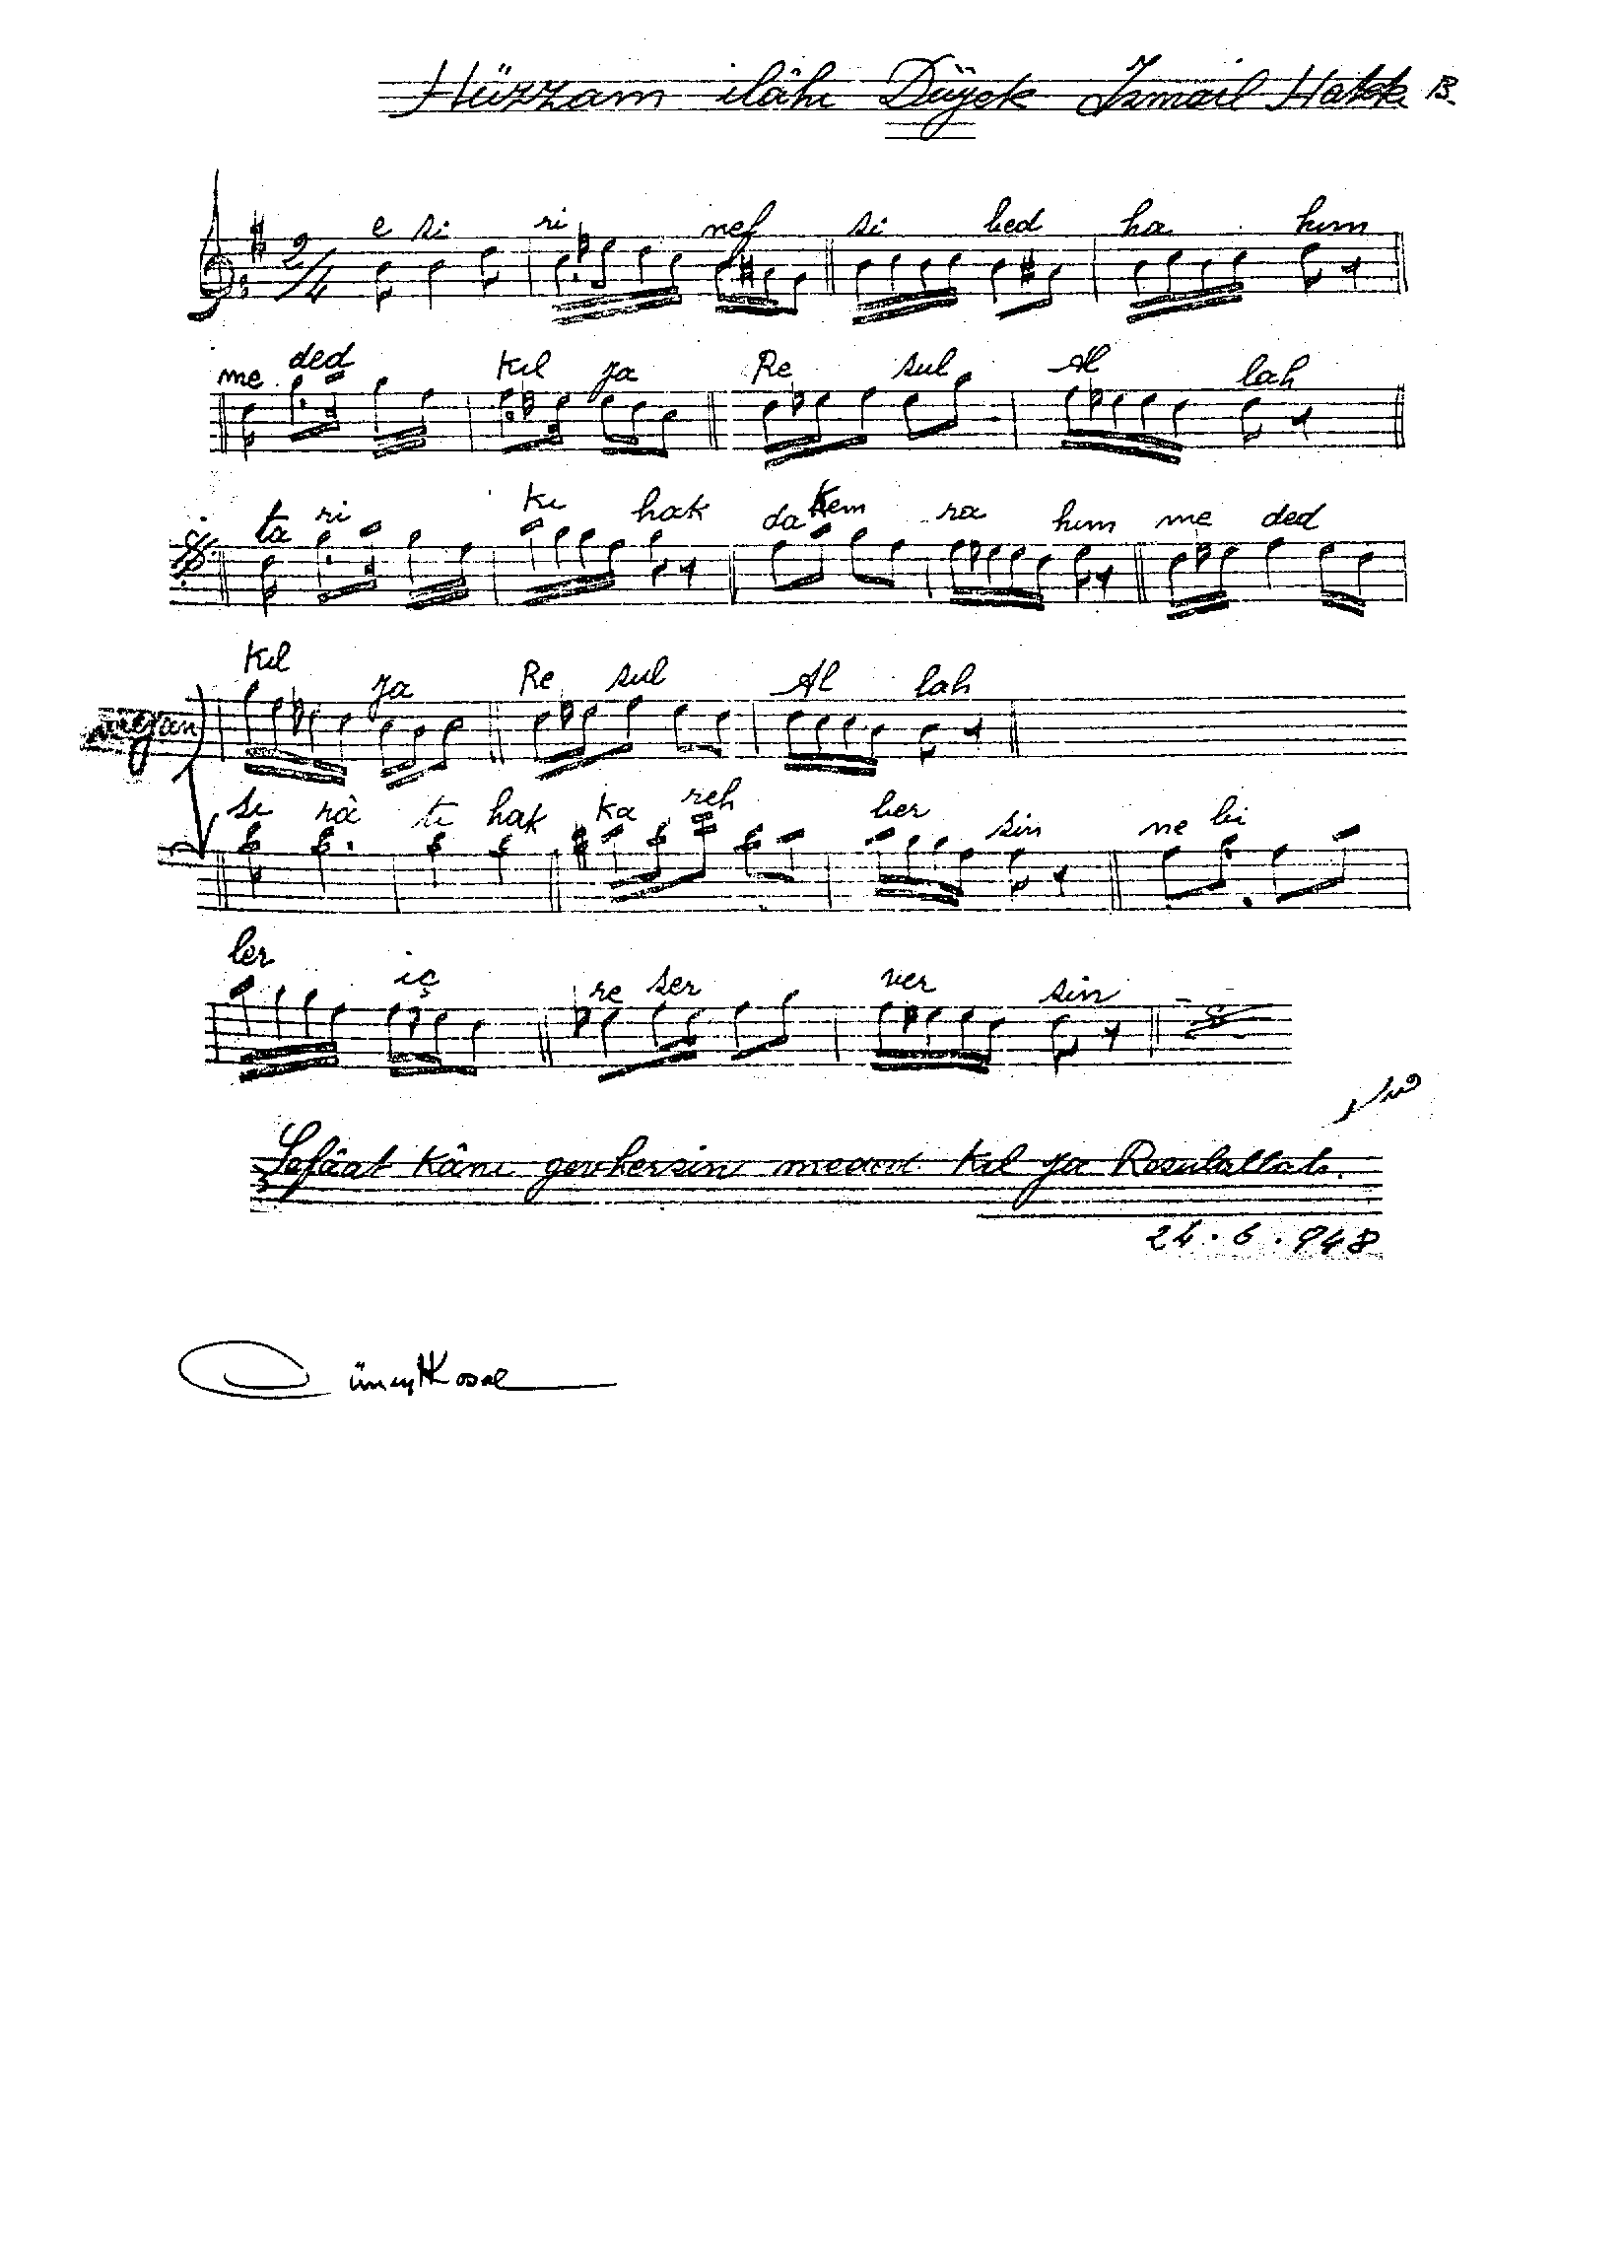 Hüzzam ilâhi Düyek İsmail Hakkı B.
2/4 e si ri nef si bed ha hım
me ded Kıl ya Re sul Al lah
ta ri ki hak da Kem ra hım me ded
Kıl ya Re sul Al lah
meyan
si râ tı hak ka reh ber sin ne bi
ler iç re ser ver sin
Şefâat kânı gevhersin meded Kıl ya Resulallah.
24.6.948
Cüneyt Kosal